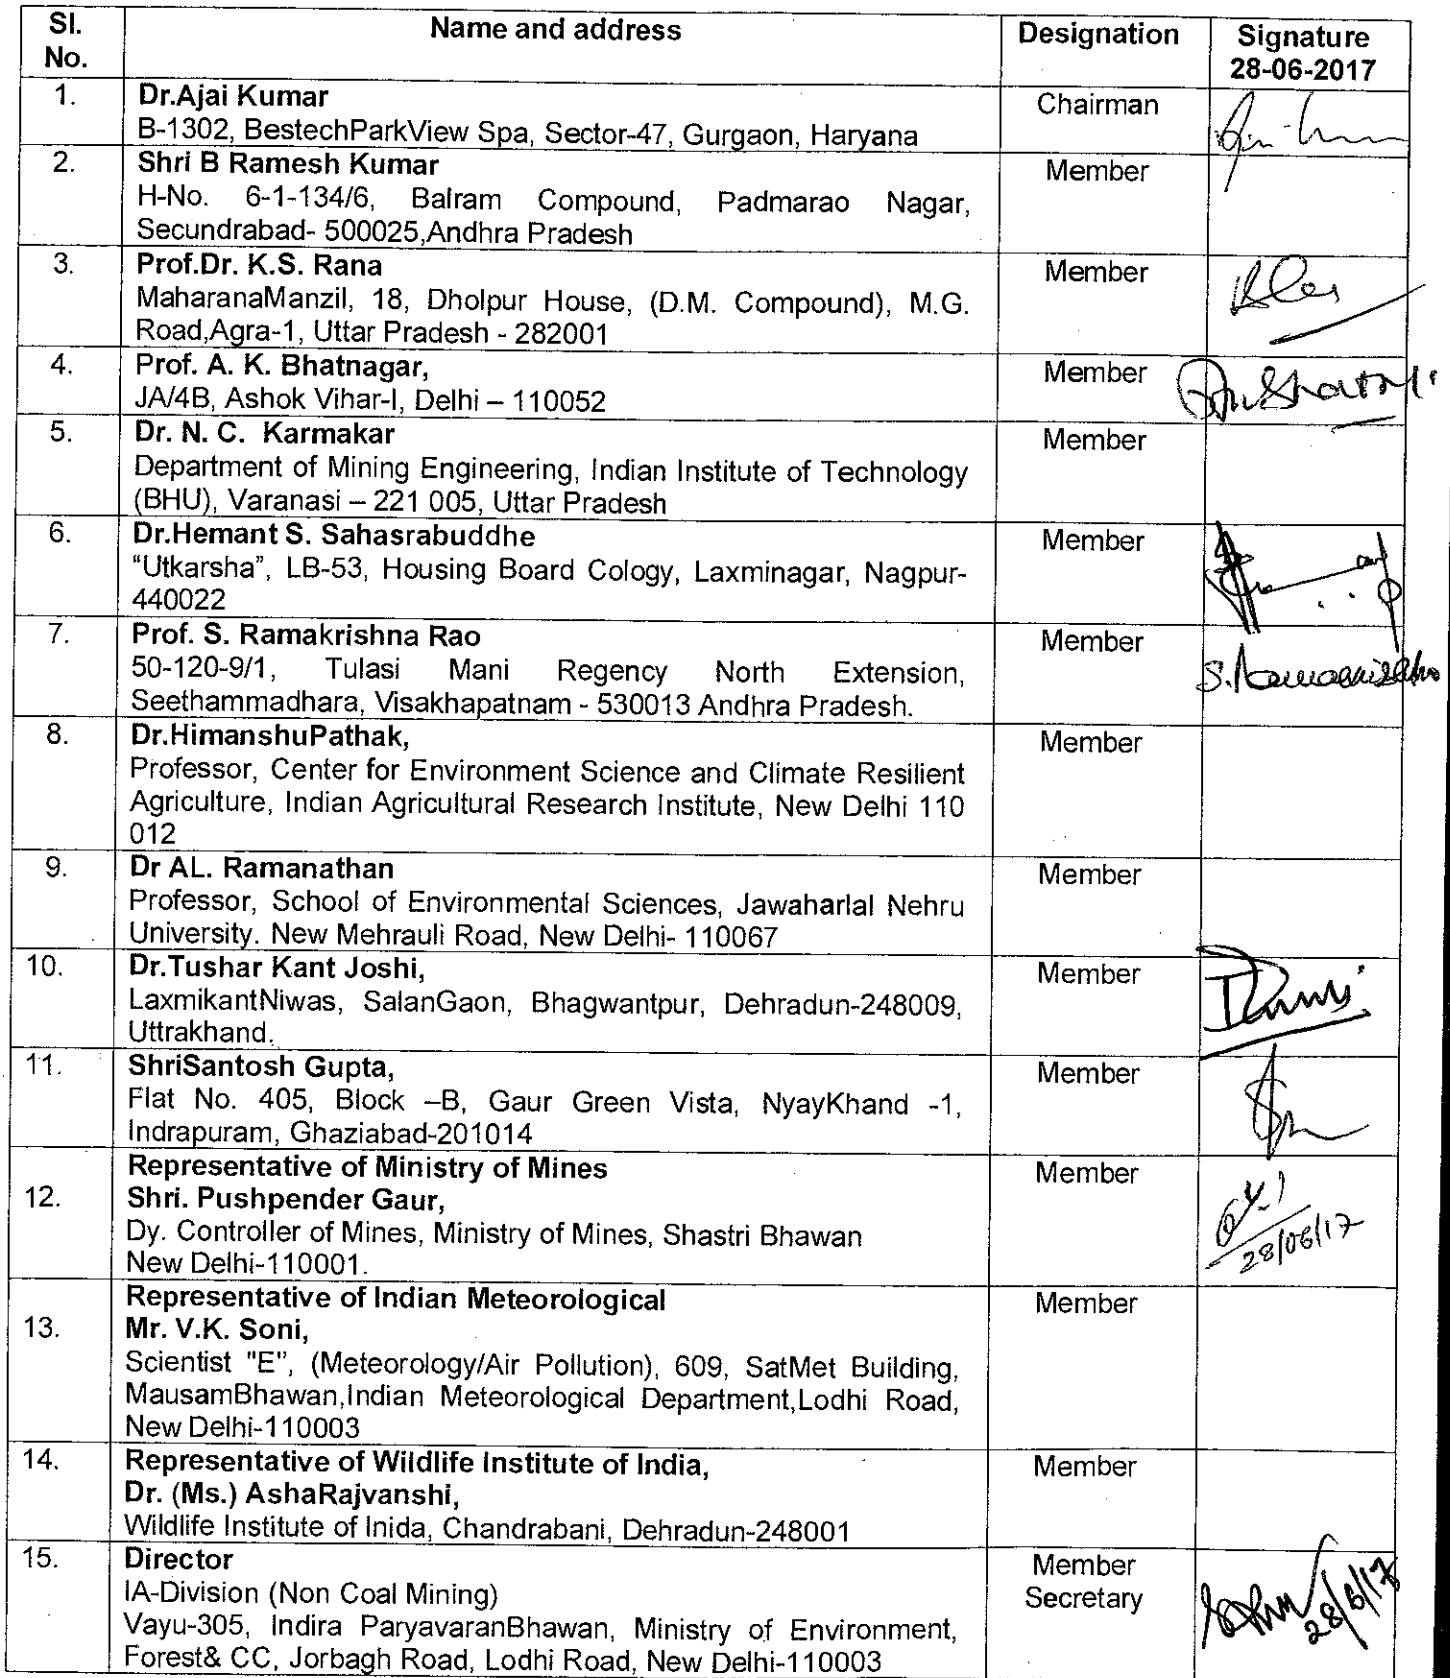 Sl. No. Name and address Designation Signature 28-06-2017
1. Dr.Ajai Kumar Chairman
B-1302, BestechParkView Spa, Sector-47, Gurgaon, Haryana
2. Shri B Ramesh Kumar Member
H-No. 6-1-134/6, Balram Compound, Padmarao Nagar,
Secundrabad- 500025,Andhra Pradesh
3. Prof.Dr. K.S. Rana Member
MaharanaManzil, 18, Dholpur House, (D.M. Compound), M.G.
Road,Agra-1, Uttar Pradesh - 282001
4. Prof. A. K. Bhatnagar, Member
JA/4B, Ashok Vihar-I, Delhi – 110052
5. Dr. N. C. Karmakar Member
Department of Mining Engineering, Indian Institute of Technology
(BHU), Varanasi – 221 005, Uttar Pradesh
6. Dr.Hemant S. Sahasrabuddhe Member
“Utkarsha”, LB-53, Housing Board Cology, Laxminagar, Nagpur-
440022
7. Prof. S. Ramakrishna Rao Member
50-120-9/1, Tulasi Mani Regency North Extension,
Seethammadhara, Visakhapatnam - 530013 Andhra Pradesh.
8. Dr.HimanshuPathak, Member
Professor, Center for Environment Science and Climate Resilient
Agriculture, Indian Agricultural Research Institute, New Delhi 110
012
9. Dr AL. Ramanathan Member
Professor, School of Environmental Sciences, Jawaharlal Nehru
University. New Mehrauli Road, New Delhi- 110067
10. Dr.Tushar Kant Joshi, Member
LaxmikantNiwas, SalanGaon, Bhagwantpur, Dehradun-248009,
Uttrakhand.
11. ShriSantosh Gupta, Member
Flat No. 405, Block –B, Gaur Green Vista, NyayKhand -1,
Indrapuram, Ghaziabad-201014
Representative of Ministry of Mines Member
12. Shri. Pushpender Gaur,
Dy. Controller of Mines, Ministry of Mines, Shastri Bhawan 28/06/17
New Delhi-110001.
Representative of Indian Meteorological Member
13. Mr. V.K. Soni,
Scientist "E", (Meteorology/Air Pollution), 609, SatMet Building,
MausamBhawan,Indian Meteorological Department,Lodhi Road,
New Delhi-110003
14. Representative of Wildlife Institute of India, Member
Dr. (Ms.) AshaRajvanshi,
Wildlife Institute of Inida, Chandrabani, Dehradun-248001
15. Director Member
IA-Division (Non Coal Mining) Secretary 28/6/17
Vayu-305, Indira ParyavaranBhawan, Ministry of Environment,
Forest& CC, Jorbagh Road, Lodhi Road, New Delhi-110003